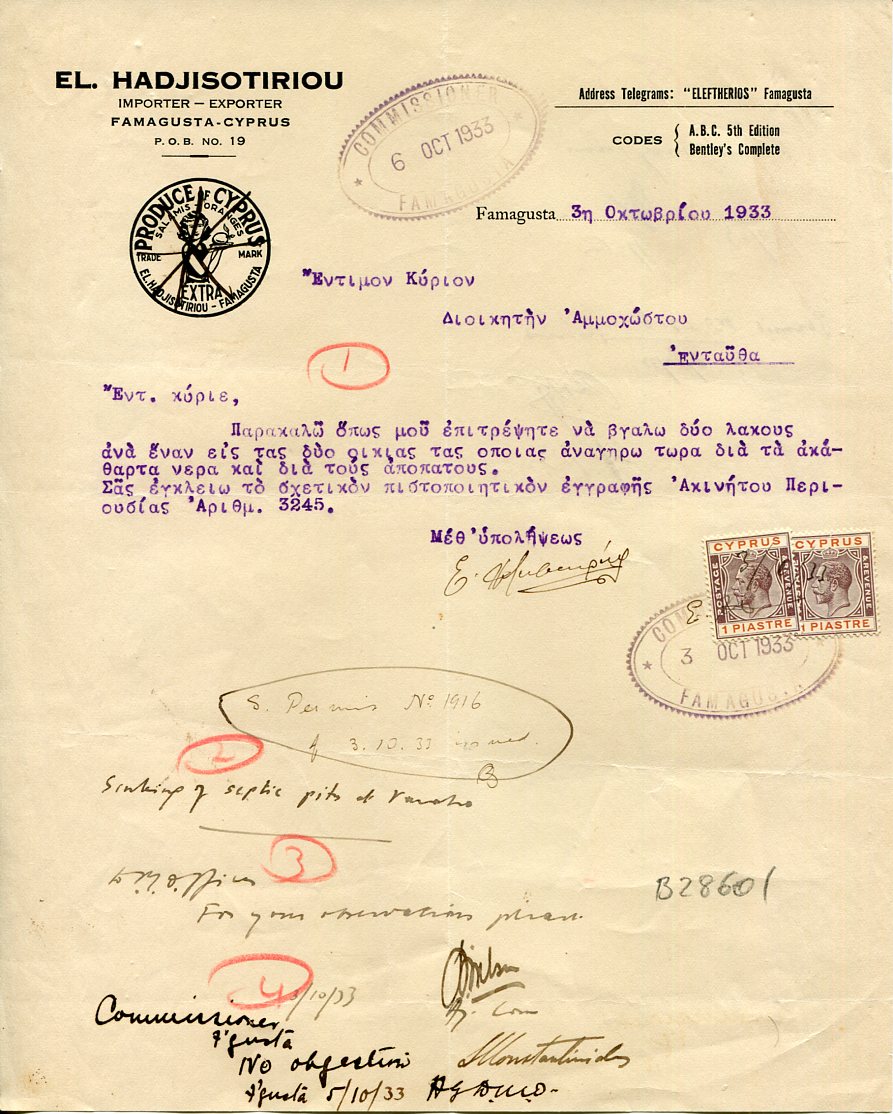 EL. HADJISOTIRIOU
IMPORTER – EXPORTER
FAMAGUSTA-CYPRUS
P.O.B. NO. 19
COMMISSIONER
6 OCT 1933
FAMAGUSTA
Address Telegrams: "ELEFTHERIOS" Famagusta
CODES { A.B.C. 5th Edition
Bentley's Complete
PRODUCE OF CYPRUS
SALAMIS ORANGES
TRADE MARK
EXTRA
EL. HADJISOTIRIOU - FAMAGUSTA
Famagusta 3η Οκτωβρίου 1933
Ἔντιμον Κύριον
Διοικητὴν Ἀμμοχώστου
Ἐνταῦθα
1
Ἔντ. κύριε,
Παρακαλῶ ὅπως μοῦ ἐπιτρέψητε νὰ βγαλω δύο λακους
ἀνὰ ἕναν εἰς τας δύο οικιας τας οποιας ἀναγηρω τωρα διὰ τὰ ἀκά-
θαρτα νερα καὶ διὰ τοὺς ἀποπατους.
Σᾶς ἐγκλειω τὸ σχετικὸν πιστοποιητικὸν ἐγγραφῆς Ἀκινήτου Περι-
ουσίας Ἀριθμ. 3245.
Μέθ'ὑπολήψεως
CYPRUS
POSTAGE
REVENUE
1 PIASTRE
CYPRUS
REVENUE
1 PIASTRE
3 OCT 1933
FAMAGUSTA
S. Permis No. 1916
of 3.10.33 issued.
2
Sinking of septic pits at Varosha
3
For your observations please.
B28601
4
3/10/33
Commissioner
F'gusta
No obgection
F'gusta 5/10/33